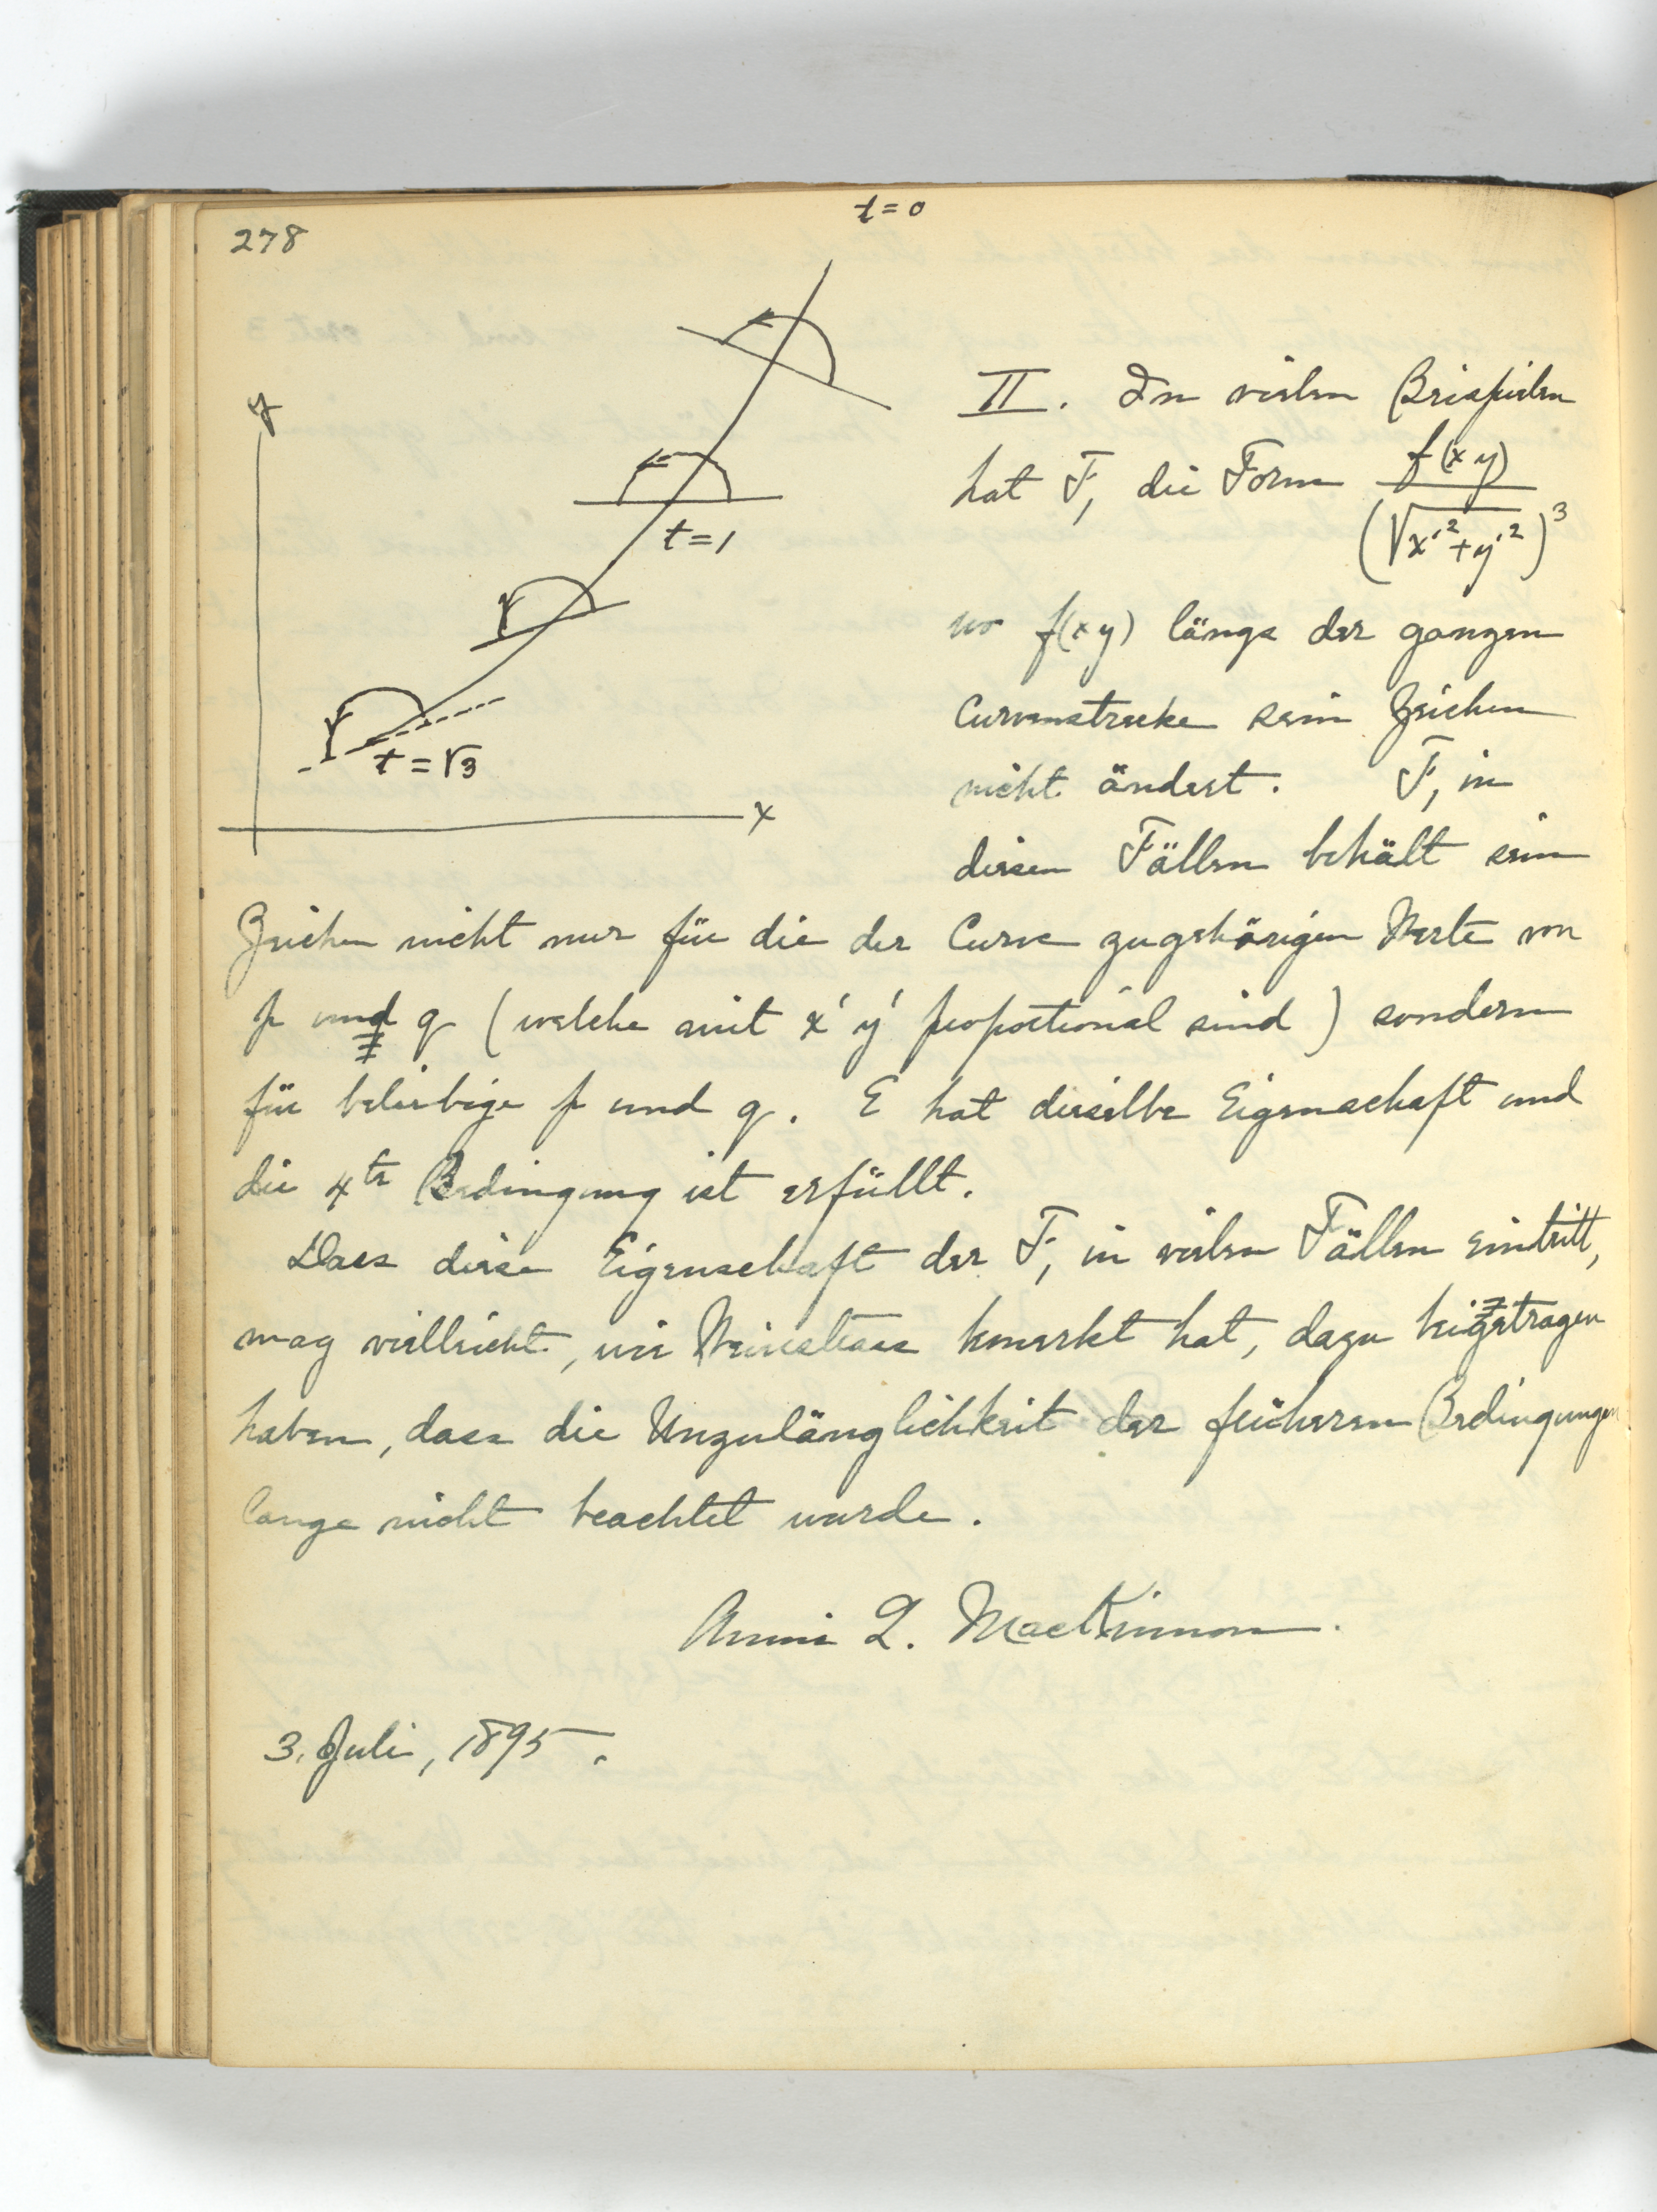 278
t=0
y
t=1
t=√3
x
II. In vielen Beispielen
hat F₁ die Form f(xy)/(√x'²+y'²)³
wo f(xy) längs der ganzen
Curvenstrecke sein Zeichen
nicht ändert. F₁ in
diesen Fällen behält sein
Zeichen nicht nur für die der Curve zugehörigen Werte von
p und q (welche mit x' y' proportional sind) sondern
für beliebige p und q. E hat dieselbe Eigenschaft und
die 4te Bedingung ist erfüllt.
Dass diese Eigenschaft der F₁ in vielen Fällen eintritt,
mag vielleicht, wie Weierstrass bemerkt hat, dazu beigetragen
haben, dass die Unzulänglichkeit der früheren Bedingungen
lange nicht beachtet wurde.
Annie L. MacKinnon.
3. Juli, 1895.